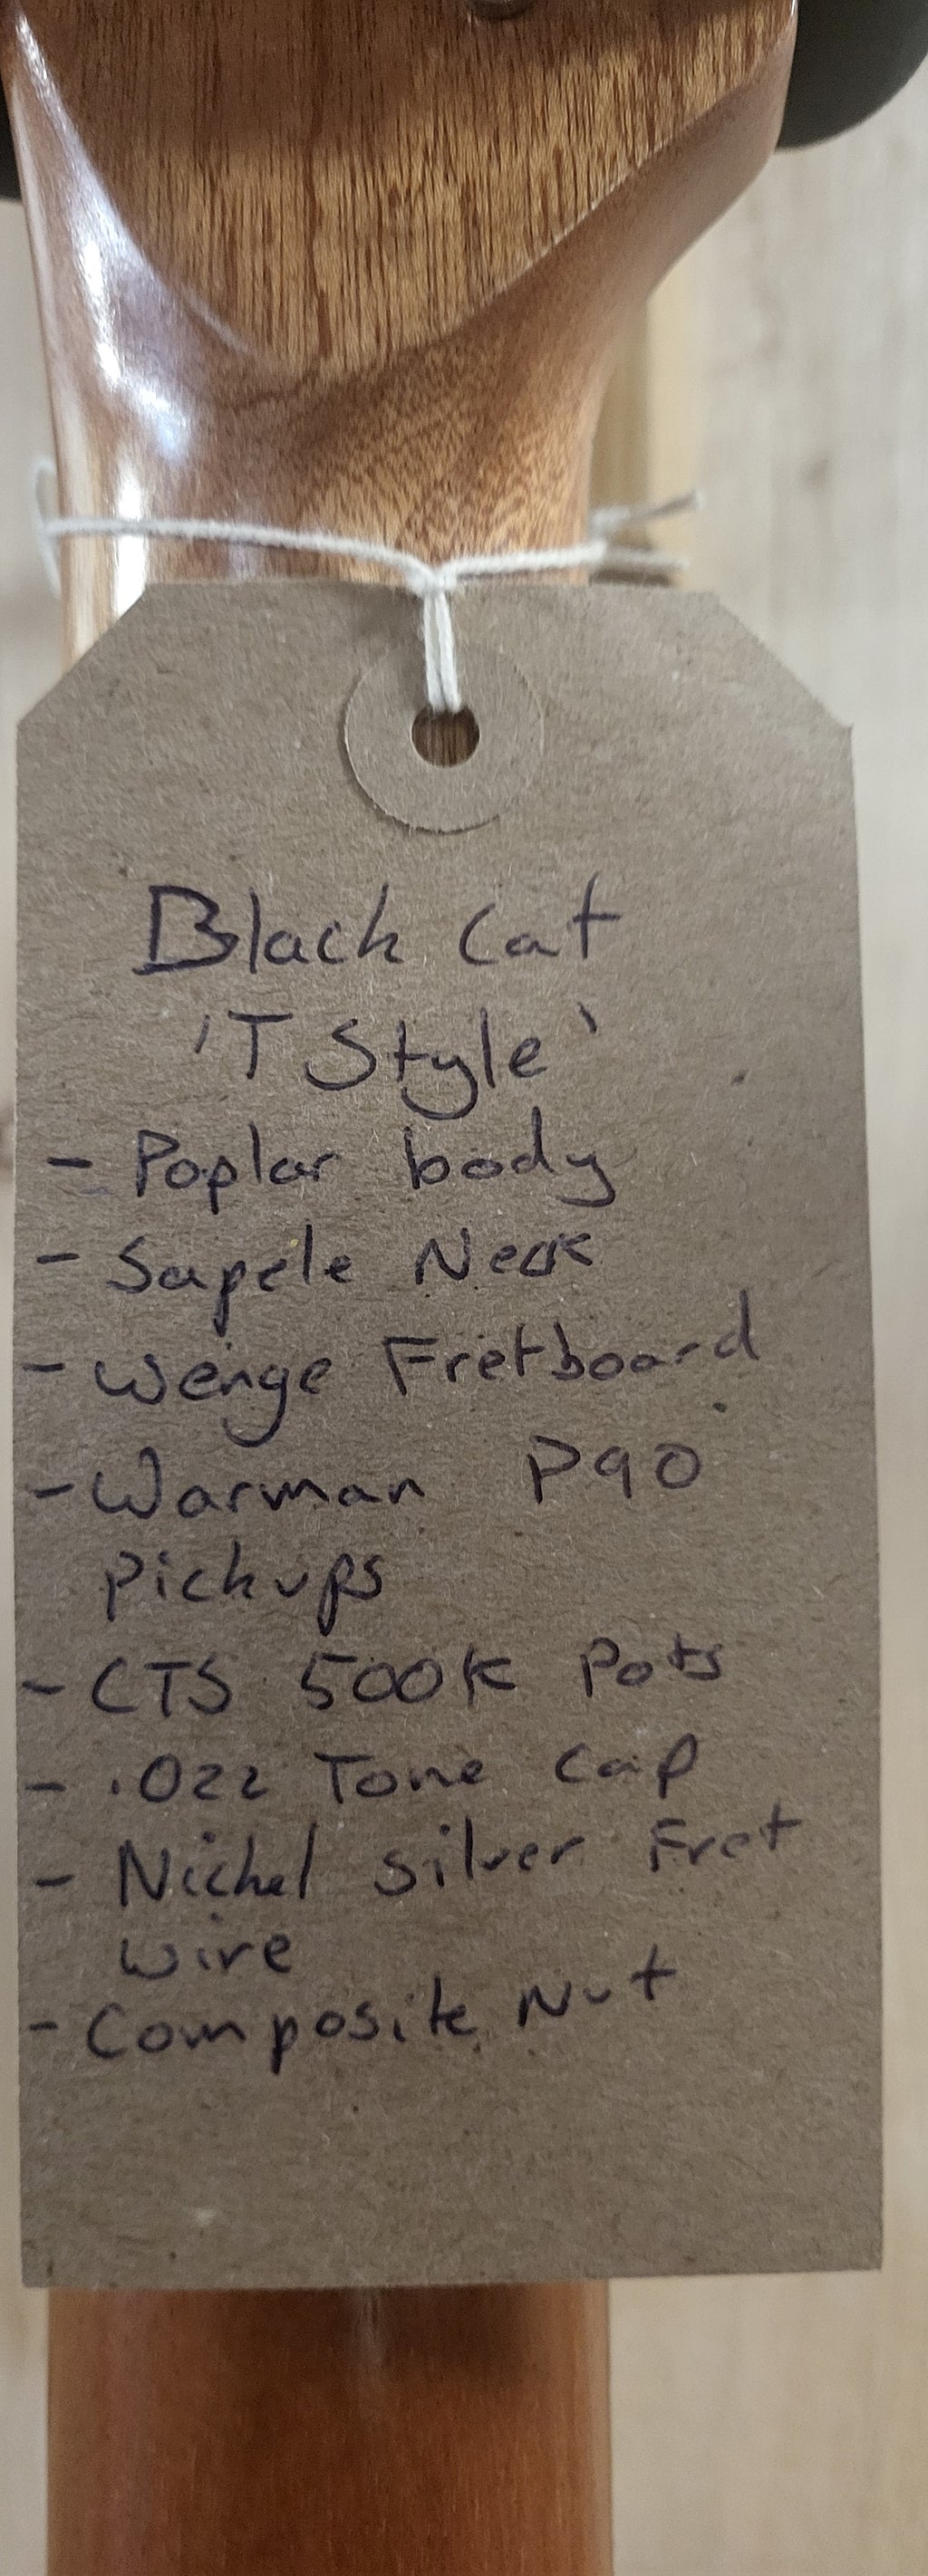 Black Cat
'T Style'
- Poplar body
- Sapele Neck
- Wenge Fretboard
- Warman P90
Pickups
- CTS 500K Pots
- .022 Tone Cap
- Nickel Silver Fret
wire
- Composite Nut